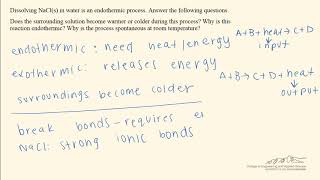 Dissolving NaCl(s) in water is an endothermic process. Answer the following questions.
Does the surrounding solution become warmer or colder during this process? Why is this
reaction endothermic? Why is the process spontaneous at room temperature?
endothermic: need heat/energy
A+B+heat→C+D
input
exothermic: releases energy
A+B→C+D+heat
output
surroundings become colder
break bonds-requires e
NaCl: strong ionic bonds